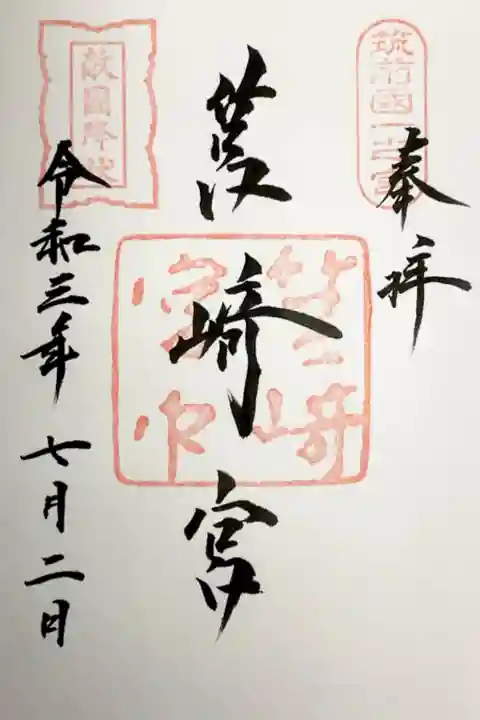 筑前國一之宮
奉拝
筥崎宮
筥崎宮印
敵國降伏
令和三年 七月二日